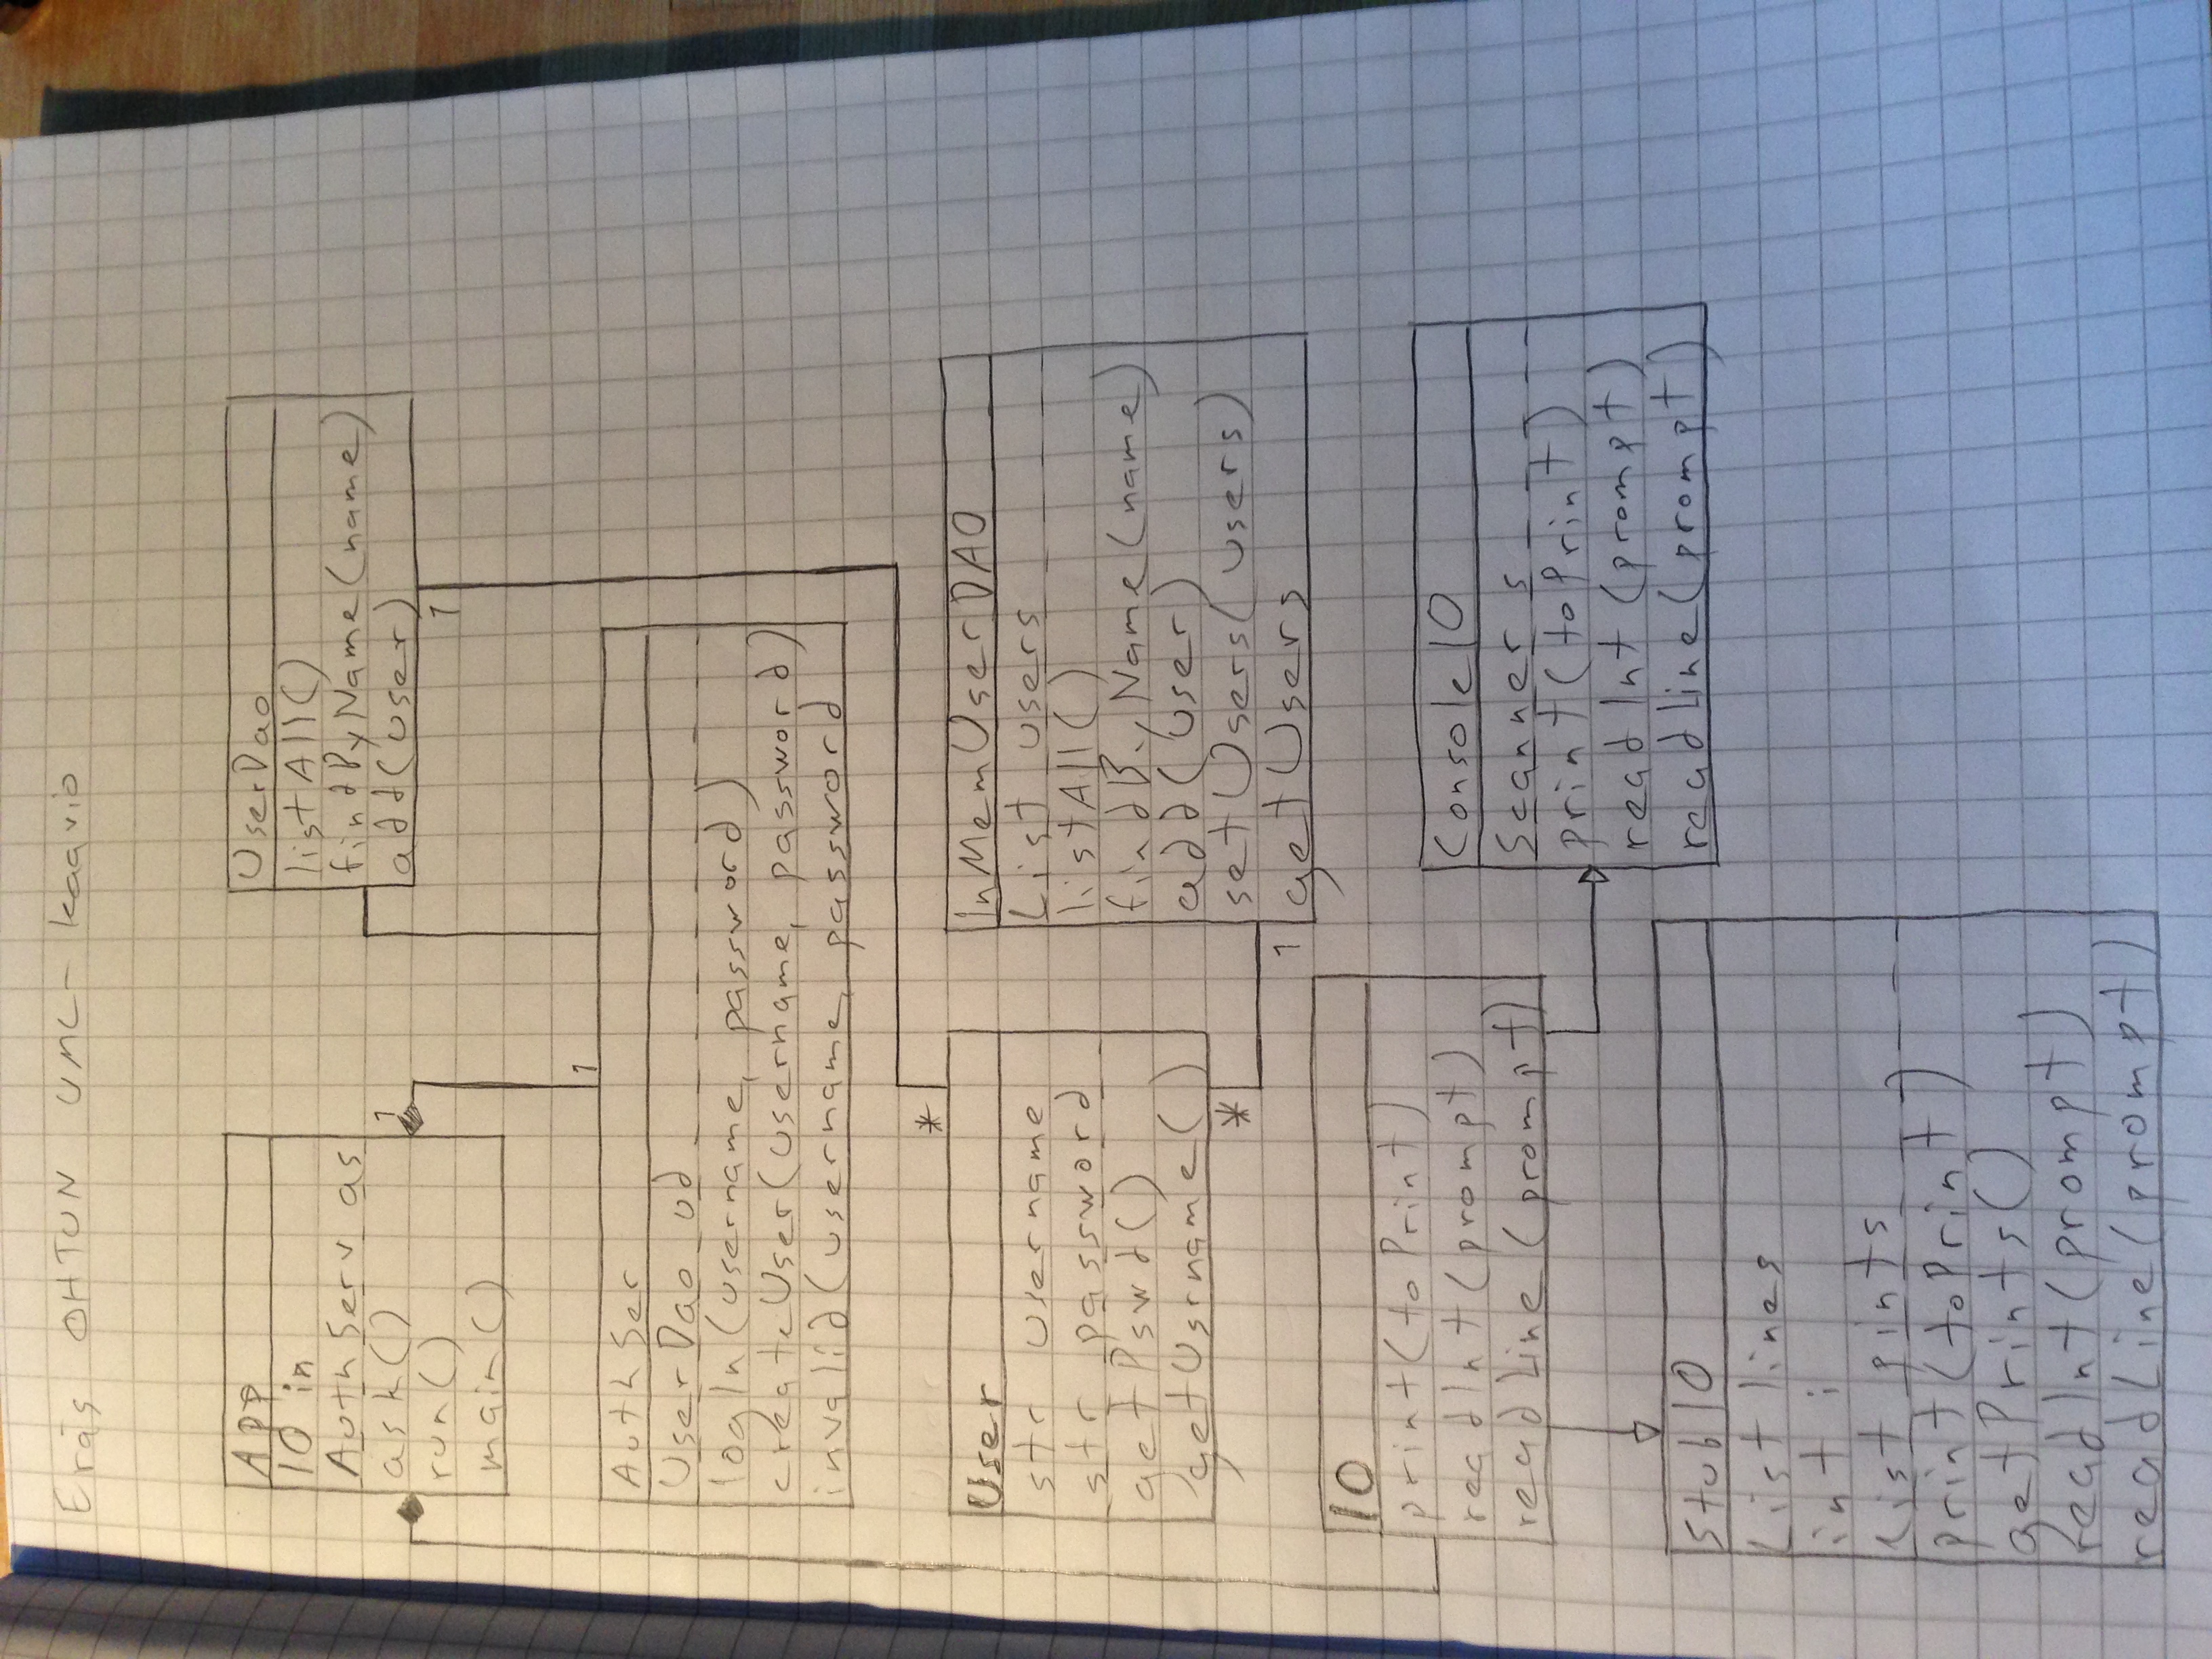 Eräs OHTUN UML-kaavio
App
IO in
AuthServ as
ask()
run()
main()
1
1
UserDao
listAll()
findByName(name)
add(user)
1
AuthSer
UserDao ud
logIn(username, password)
createUser(username, password)
invalid(username, password
*
User
str username
str password
getPswd()
getUsrname()
*
InMemUserDAO
List users
listAll()
findByName(name)
add(user)
setUsers(users)
getUsers
1
IO
print(toPrint)
readInt(prompt)
readLine(prompt)
ConsoleIO
Scanner s
print(toPrint)
readInt(prompt)
readLine(prompt)
StubIO
List lines
int i
List pints
print(toPrint)
getPrints()
readInt(prompt)
readLine(prompt)